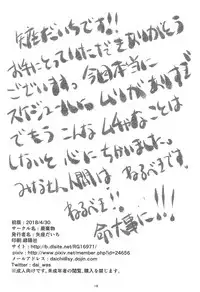 矢座だいちです!!
お手にとっていただきありがとう
ございます。今回本当に
スケジュールに、ムリがありすぎ
でもう こんな ムチャなことは
しないぞと 心にちかいました。
みなさん 人間は ねるべきです。
ねるべき!!
命大事に!!!
初版:2018/4/30
サークル名:
発行者名:矢座だいち
印刷:緑陽社
サイト:http://b.dlsite.net/RG16971/
pixiv:http://www.pixiv.net/member.php?id=24656
メールアドレス:daichi@sy.dojin.com
Twitter:dai_was
※成人向けです。未成年者の閲覧、購入を禁じます。